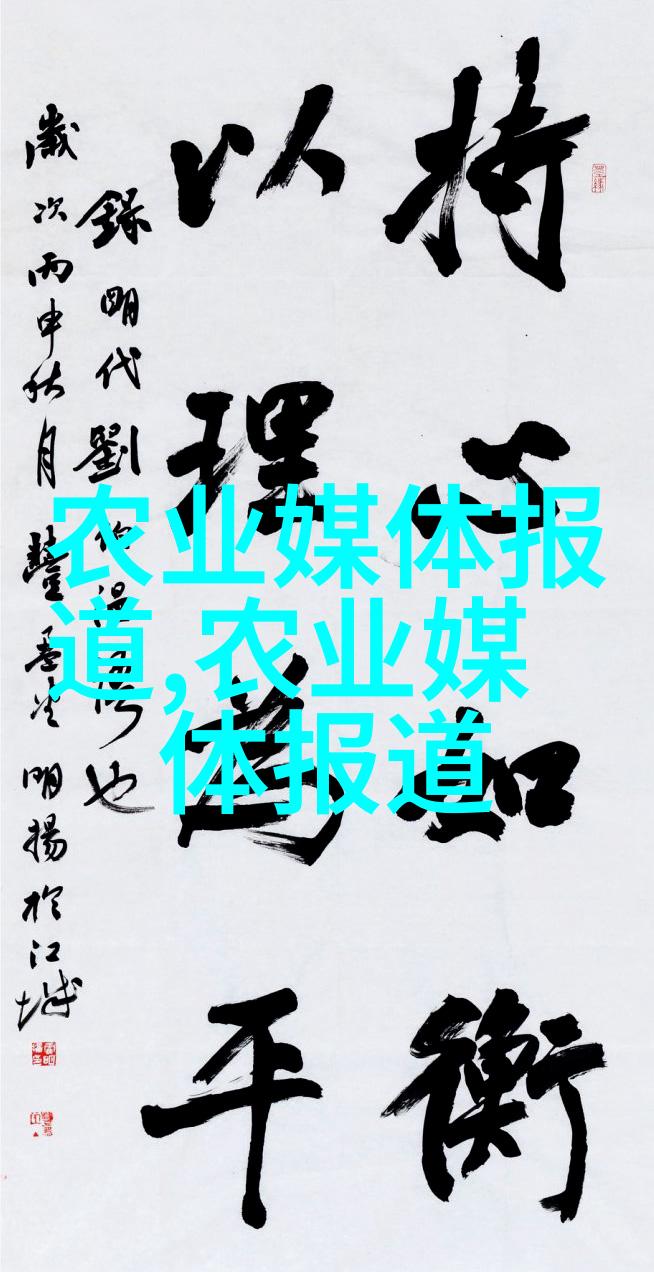 持心如衡
以理為平
錄明代劉伯溫句也
歲次丙申秋月
明揚於江城
农业媒体报
道,农业媒
体报道